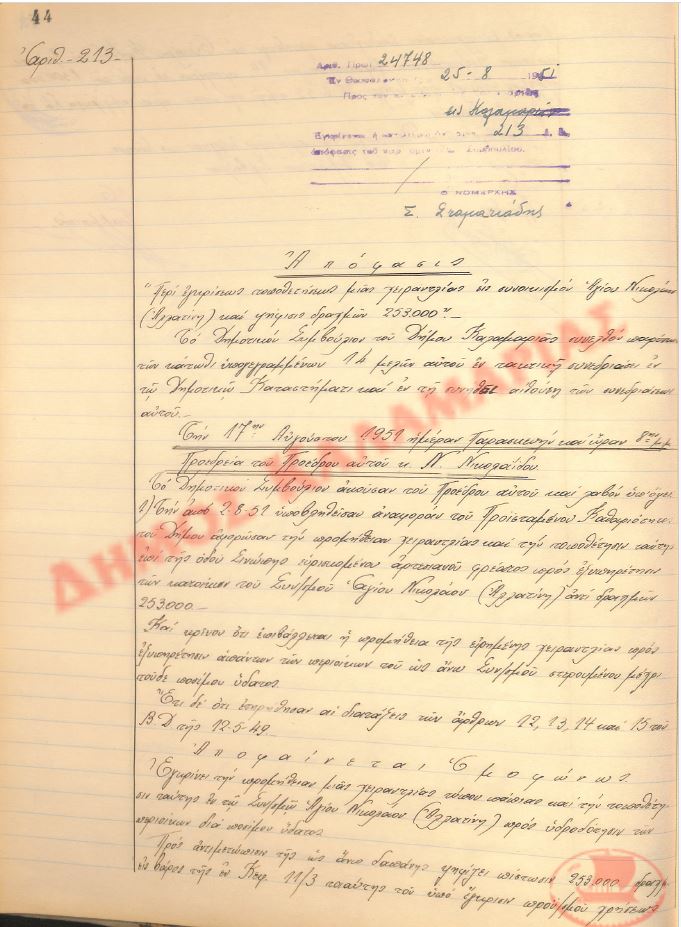 44
Ἀριθ. 213
Ἀριθ. Πρωτ. 24748
Ἐν Θεσσαλονίκῃ 25-8 1951
Πρὸς τὸν
Καλαμαριᾶς
Ἐγκρίνεται ἡ ὑπ' ἀριθ. 213
ἀπόφασις τοῦ Συμβουλίου.
Ο ΝΟΜΑΡΧΗΣ
Σ. Σταματιάδης
Ἀπόφασις
"Περί ἐγκρίσεως τοποθετήσεως μιᾶς χειραντλίας εἰς συνοικισμόν Ἁγίου Νικολάου
(Ἀλλατίνη) καί ψήφισις δραχμῶν 253.000"
Τό Δημοτικόν Συμβούλιον τοῦ Δήμου Καλαμαριᾶς συνελθόν παρόντων
τῶν κάτωθι ὑπογεγραμμένων 14 μελῶν αὐτοῦ ἐν τακτικῇ συνεδριάσει ἐν
τῷ Δημοτικῷ Καταστήματι καί ἐν τῇ συνήθει αἰθούσῃ τῶν συνεδριάσεων
αὐτοῦ.-
Τήν 17ην Αὐγούστου 1951 ἡμέραν Παρασκευήν καί ὥραν 8ην μ.μ.
Προεδρεία τοῦ Προέδρου αὐτοῦ κ. Ν. Νικολαΐδου.
Τό Δημοτικόν Συμβούλιον ἀκοῦσαν τοῦ Προέδρου αὐτοῦ καί λαβόν ὑπ' ὄψει
1) Τήν ἀπό 2.8.51 ὑποβληθεῖσαν ἀναφοράν τοῦ Προϊσταμένου Καθαριότητος
τοῦ Δήμου ἀφορῶσαν τήν προμήθειαν χειραντλίας καί τήν τοποθέτησιν ταύτης
ἐπί τῆς ὁδοῦ Σινώπης εὑρισκομένου ἀρτεσιανοῦ φρέατος πρός ἐξυπηρέτησιν
τῶν κατοίκων τοῦ Συν/σμοῦ Ἁγίου Νικολάου (Ἀλλατίνη) ἀντί δραχμῶν
253.000.-
Καί κρῖνον ὅτι ἐπιβάλλεται ἡ προμήθεια τῆς εἰρημένης χειραντλίας πρός
ἐξυπηρέτησιν ἁπάντων τῶν περιοίκων τοῦ ὡς ἄνω Συν/σμοῦ στερουμένου μέχρι
τοῦδε ποσίμου ὕδατος.
Ἔτι δέ ὅτι ἐτηρήθησαν αἱ διατάξεις τῶν ἄρθρων 12, 13, 14 καί 15 τοῦ
Β.Δ. τῆς 12-5-49
Ἀποφαίνεται Ὁμοφώνως
Ἐγκρίνει τήν προμήθειαν μιᾶς χειραντλίας τύπου πάπιας καί τήν τοποθέτη-
σιν ταύτης ἐν τῷ Συν/σμῷ Ἁγίου Νικολάου (Ἀλλατίνη) πρός ὑδροδότησιν τῶν
περιοίκων διά ποσίμου ὕδατος
Πρός ἀντιμετώπισιν τῆς ὡς ἄνω δαπάνης ψηφίζει πίστωσιν 253.000 δραχμ.
εἰς βάρος τῆς ἐν Κεφ. 11/3 τοιαύτης τοῦ ὑπό ἔγκρισιν προϋπ/σμοῦ χρήσεως
ΔΗΜΟΣ ΚΑΛΑΜΑΡΙΑΣ